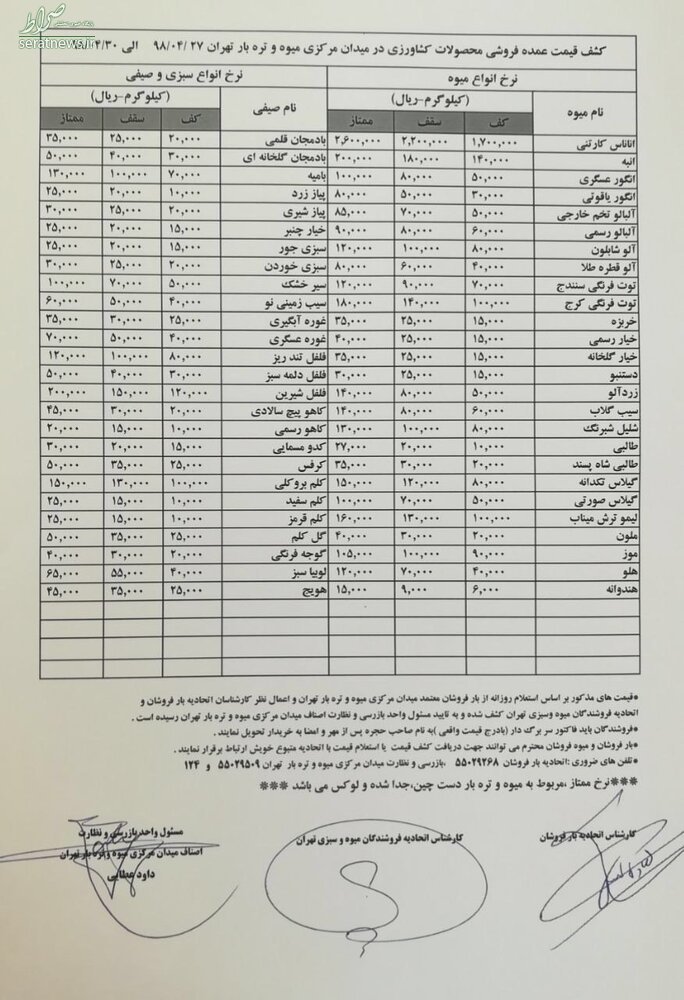 صراط
پایگاه خبری تحلیلی
seratnews.ir
کشف قیمت عمده فروشی محصولات کشاورزی در میدان مرکزی میوه و تره بار تهران ۹۸/۰۴/۲۷ الی ۹۸/۰۴/۳۰
نرخ انواع میوه نرخ انواع سبزی و صیفی
نام میوه (کیلوگرم-ریال) نام صیفی (کیلوگرم-ریال)
کف سقف ممتاز کف سقف ممتاز
اناناس کارتنی ۱,۷۰۰,۰۰۰ ۲,۲۰۰,۰۰۰ ۲,۶۰۰,۰۰۰ بادمجان قلمی ۲۰,۰۰۰ ۲۵,۰۰۰ ۳۵,۰۰۰
انبه ۱۴۰,۰۰۰ ۱۸۰,۰۰۰ ۲۰۰,۰۰۰ بادمجان گلخانه ای ۳۰,۰۰۰ ۴۰,۰۰۰ ۵۰,۰۰۰
انگور عسگری ۵۰,۰۰۰ ۸۰,۰۰۰ ۱۰۰,۰۰۰ بامیه ۷۰,۰۰۰ ۱۰۰,۰۰۰ ۱۳۰,۰۰۰
انگور یاقوتی ۳۰,۰۰۰ ۵۰,۰۰۰ ۸۰,۰۰۰ پیاز زرد ۱۰,۰۰۰ ۲۰,۰۰۰ ۲۵,۰۰۰
آلبالو تخم خارجی ۵۰,۰۰۰ ۷۰,۰۰۰ ۸۵,۰۰۰ پیاز شیری ۲۰,۰۰۰ ۲۵,۰۰۰ ۳۰,۰۰۰
آلبالو رسمی ۶۰,۰۰۰ ۸۰,۰۰۰ ۹۰,۰۰۰ خیار چنبر ۱۵,۰۰۰ ۲۰,۰۰۰ ۲۵,۰۰۰
آلو شابلون ۸۰,۰۰۰ ۱۰۰,۰۰۰ ۱۲۰,۰۰۰ سبزی جور ۱۵,۰۰۰ ۲۰,۰۰۰ ۲۵,۰۰۰
آلو قطره طلا ۴۰,۰۰۰ ۶۰,۰۰۰ ۸۰,۰۰۰ سبزی خوردن ۲۰,۰۰۰ ۲۵,۰۰۰ ۳۰,۰۰۰
توت فرنگی سنندج ۷۰,۰۰۰ ۹۰,۰۰۰ ۱۲۰,۰۰۰ سیر خشک ۵۰,۰۰۰ ۷۰,۰۰۰ ۱۰۰,۰۰۰
توت فرنگی کرج ۱۰۰,۰۰۰ ۱۴۰,۰۰۰ ۱۸۰,۰۰۰ سیب زمینی نو ۴۰,۰۰۰ ۵۰,۰۰۰ ۶۰,۰۰۰
خربزه ۱۵,۰۰۰ ۲۵,۰۰۰ ۳۵,۰۰۰ غوره آبگیری ۲۵,۰۰۰ ۳۰,۰۰۰ ۳۵,۰۰۰
خیار رسمی ۱۵,۰۰۰ ۲۵,۰۰۰ ۴۰,۰۰۰ غوره عسگری ۴۰,۰۰۰ ۵۰,۰۰۰ ۷۰,۰۰۰
خیار گلخانه ۱۵,۰۰۰ ۲۵,۰۰۰ ۳۵,۰۰۰ فلفل تند ریز ۸۰,۰۰۰ ۱۰۰,۰۰۰ ۱۲۰,۰۰۰
دستنبو ۱۵,۰۰۰ ۲۵,۰۰۰ ۳۰,۰۰۰ فلفل دلمه سبز ۳۰,۰۰۰ ۴۰,۰۰۰ ۵۰,۰۰۰
زردآلو ۵۰,۰۰۰ ۸۰,۰۰۰ ۱۴۰,۰۰۰ فلفل شیرین ۱۲۰,۰۰۰ ۱۵۰,۰۰۰ ۲۰۰,۰۰۰
سیب گلاب ۶۰,۰۰۰ ۸۰,۰۰۰ ۱۴۰,۰۰۰ کاهو پیچ سالادی ۲۰,۰۰۰ ۳۰,۰۰۰ ۴۵,۰۰۰
شلیل شبرنگ ۸۰,۰۰۰ ۱۰۰,۰۰۰ ۱۳۰,۰۰۰ کاهو رسمی ۱۰,۰۰۰ ۱۵,۰۰۰ ۲۰,۰۰۰
طالبی ۱۰,۰۰۰ ۲۰,۰۰۰ ۲۷,۰۰۰ کدو مسمایی ۱۵,۰۰۰ ۲۰,۰۰۰ ۳۰,۰۰۰
طالبی شاه پسند ۲۰,۰۰۰ ۳۰,۰۰۰ ۳۵,۰۰۰ کرفس ۲۵,۰۰۰ ۳۵,۰۰۰ ۵۰,۰۰۰
گیلاس تکدانه ۸۰,۰۰۰ ۱۲۰,۰۰۰ ۱۵۰,۰۰۰ کلم بروکلی ۱۰۰,۰۰۰ ۱۳۰,۰۰۰ ۱۵۰,۰۰۰
گیلاس صورتی ۵۰,۰۰۰ ۷۰,۰۰۰ ۱۰۰,۰۰۰ کلم سفید ۱۰,۰۰۰ ۱۵,۰۰۰ ۲۵,۰۰۰
لیمو ترش میناب ۱۰۰,۰۰۰ ۱۳۰,۰۰۰ ۱۶۰,۰۰۰ کلم قرمز ۱۰,۰۰۰ ۱۵,۰۰۰ ۲۵,۰۰۰
ملون ۲۰,۰۰۰ ۳۰,۰۰۰ ۴۰,۰۰۰ گل کلم ۲۵,۰۰۰ ۳۵,۰۰۰ ۵۰,۰۰۰
موز ۹۰,۰۰۰ ۱۰۰,۰۰۰ ۱۰۵,۰۰۰ گوجه فرنگی ۲۰,۰۰۰ ۳۰,۰۰۰ ۴۰,۰۰۰
هلو ۴۰,۰۰۰ ۷۰,۰۰۰ ۱۲۰,۰۰۰ لوبیا سبز ۴۰,۰۰۰ ۵۵,۰۰۰ ۶۵,۰۰۰
هندوانه ۶,۰۰۰ ۹,۰۰۰ ۱۵,۰۰۰ هویج ۲۵,۰۰۰ ۳۵,۰۰۰ ۴۵,۰۰۰
*قیمت های مذکور بر اساس استعلام روزانه از بار فروشان معتمد میدان مرکزی میوه و تره بار تهران و اعمال نظر کارشناسان اتحادیه بار فروشان و
اتحادیه فروشندگان میوه وسبزی تهران کشف شده و به تایید مسئول واحد بازرسی و نظارت اصناف میدان مرکزی میوه و تره بار تهران رسیده است .
*فروشندگان باید فاکتور سر برگ دار (بادرج قیمت واقعی )به نام صاحب حجره پس از مهر و امضا به خریدار تحویل نمایند .
*بار فروشان و میوه فروشان محترم می توانند جهت دریافت کشف قیمت یا استعلام قیمت با اتحادیه متبوع خویش ارتباط برقرار نمایند .
*تلفن های ضروری :اتحادیه بار فروشان ۵۵۰۲۹۲۶۸ ،بازرسی و نظارت میدان مرکزی میوه و تره بار تهران ۵۵۰۲۹۵۰۹ و ۱۲۴
***نرخ ممتاز ،مربوط به میوه و تره بار دست چین،جدا شده و لوکس می باشد ***
کارشناس اتحادیه بار فروشان
کارشناس اتحادیه فروشندگان میوه و سبزی تهران
مسئول واحد بازرسی و نظارت
اصناف میدان مرکزی میوه و تره بار تهران
داود عطایی